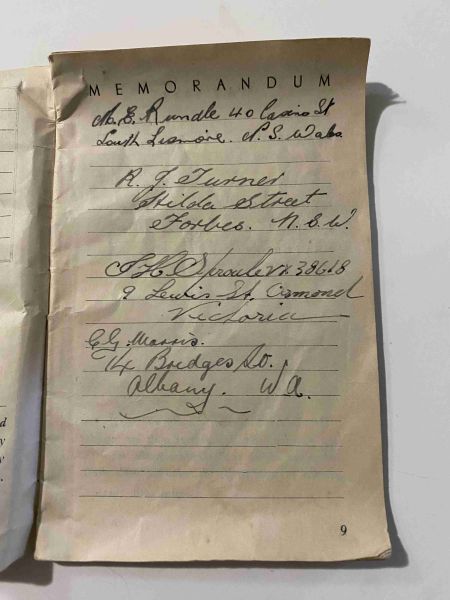 MEMORANDUM
E. Rundle 40 Casino St
South Lismore. N. S. Wales
R. J. Turner
Hilda Street
Forbes. N.S.W.
Sproule VX 38618
9 Lewis St. Ormond
Victoria
Morris.
Bridges
Albany. W A.
d
y
9